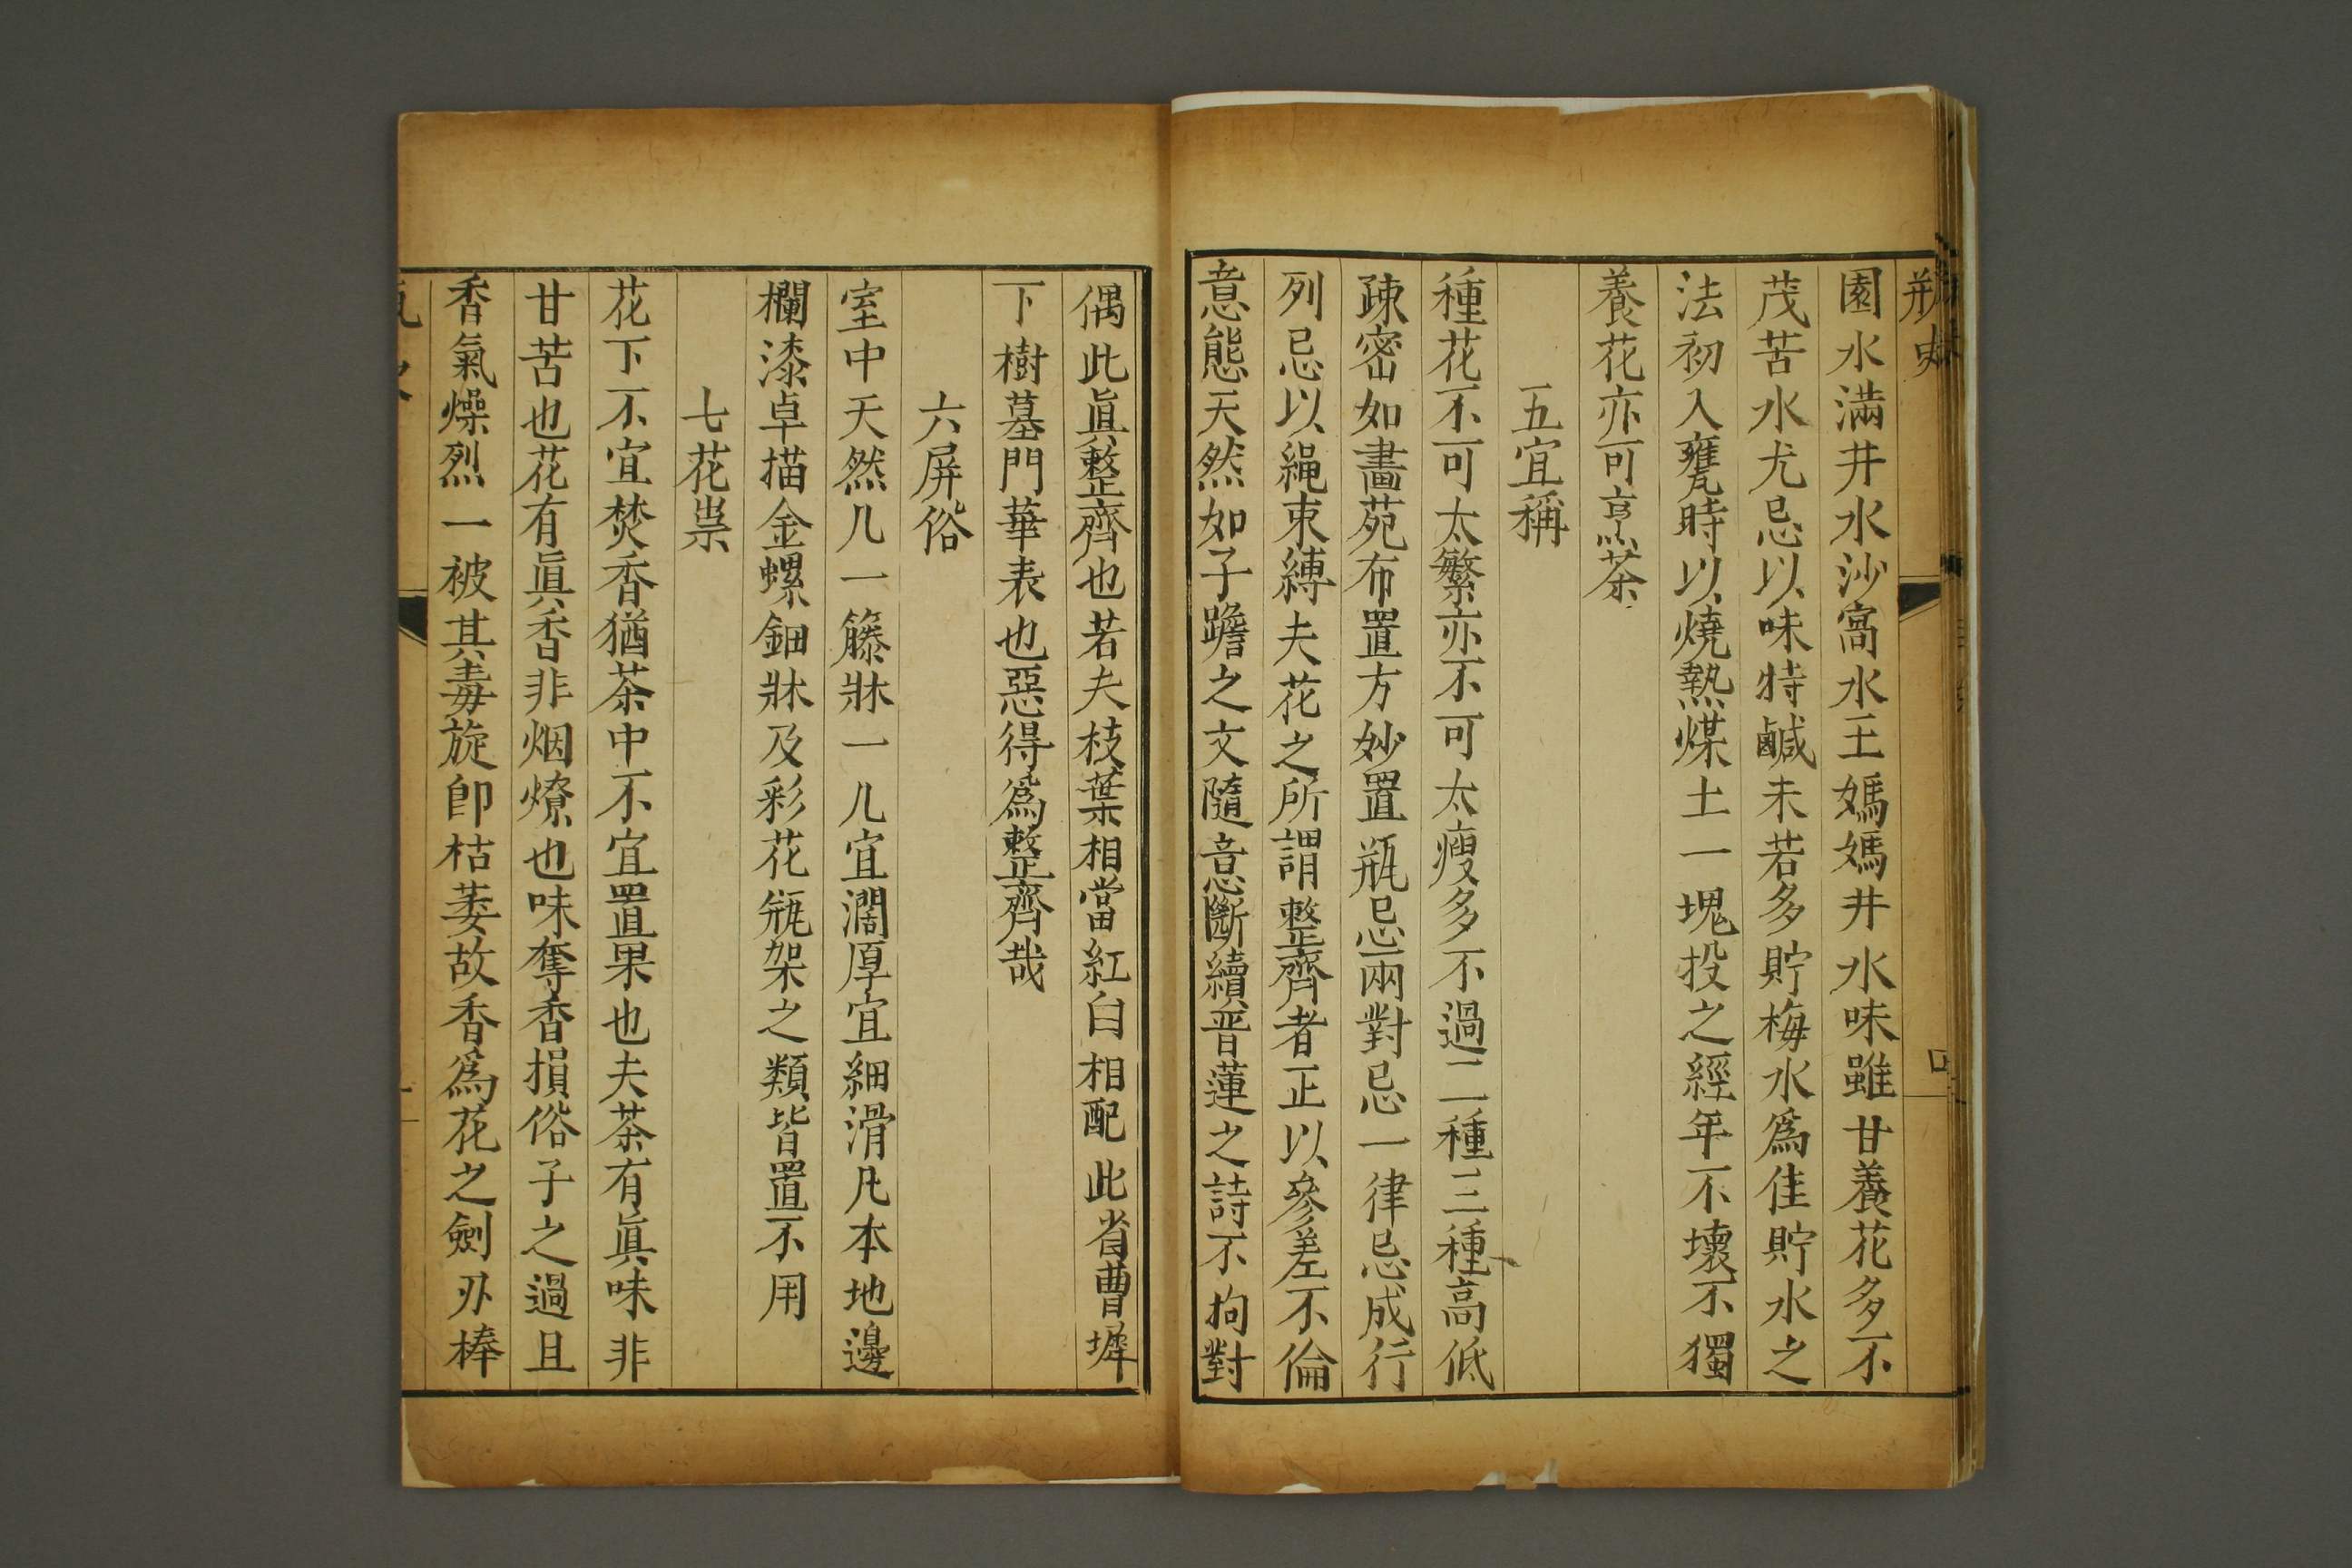 瓶史
園水滿井水沙窩水王媽媽井水味雖甘養花多不
茂苦水尤忌以味特鹹未若多貯梅水爲佳貯水之
法初入甕時以燒熱煤土一塊投之經年不壞不獨
養花亦可烹茶
五宜稱
種花不可太繁亦不可太瘦多不過二種三種高低
疎密如畵苑布置方妙置瓶忌兩對忌一律忌成行
列忌以繩束縛夫花之所謂整齊者正以參差不倫
意態天然如子瞻之文隨意斷續青蓮之詩不拘對
偶此眞整齊也若夫枝葉相當紅白相配此省曹墀
下樹墓門華表也惡得爲整齊哉
六屏俗
室中天然几一籐牀一几宜濶厚宜細滑凡本地邊
欄漆卓描金螺鈿牀及彩花瓶架之類皆置不用
七花祟
花下不宜焚香猶茶中不宜置果也夫茶有眞味非
甘苦也花有眞香非烟燎也味奪香損俗子之過且
香氣燥烈一被其毒旋卽枯萎故香爲花之劍刃棒